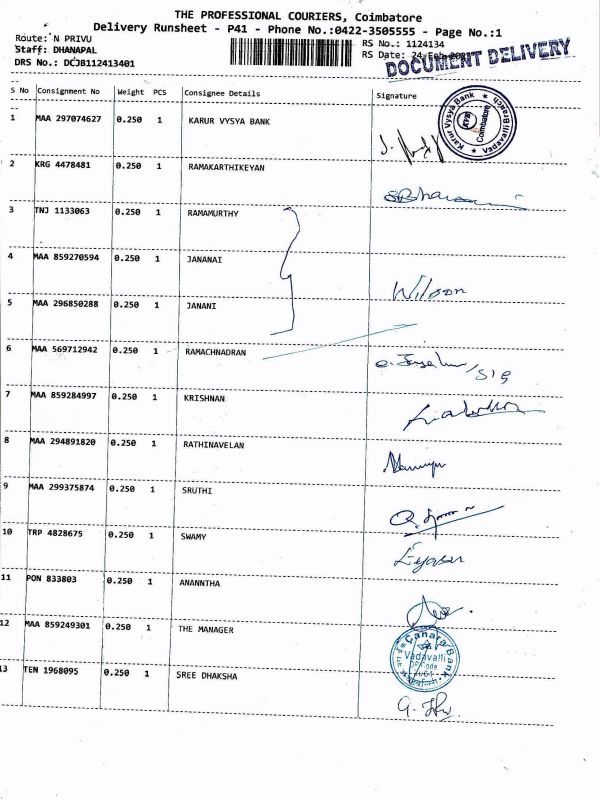 THE PROFESSIONAL COURIERS, Coimbatore
Delivery Runsheet - P41 - Phone No.:0422-3505555 - Page No.:1
Route: N PRIVU
RS No.: 1124134
Staff: DHANAPAL
RS Date: 24-Feb
DRS No.: DCJB112413401
DOCUMENT DELIVERY
S No Consignment No Weight PCS Consignee Details Signature
1 MAA 297074627 0.250 1 KARUR VYSYA BANK
Karur Vysya Bank ★ Vadavalli Branch ★ KVB Coimbatore
2 KRG 4478481 0.250 1 RAMAKARTHIKEYAN
3 TNJ 1133063 0.250 1 RAMAMURTHY
4 MAA 859270594 0.250 1 JANANAI
Wilson
5 MAA 296850288 0.250 1 JANANI
6 MAA 569712942 0.250 1 RAMACHNADRAN
7 MAA 859284997 0.250 1 KRISHNAN
8 MAA 294891820 0.250 1 RATHINAVELAN
9 MAA 299375874 0.250 1 SRUTHI
10 TRP 4828675 0.250 1 SWAMY
11 PON 833803 0.250 1 ANANNTHA
12 MAA 859249301 0.250 1 THE MANAGER
Canara Bank Vadavalli DP Code
13 TEN 1968095 0.250 1 SREE DHAKSHA